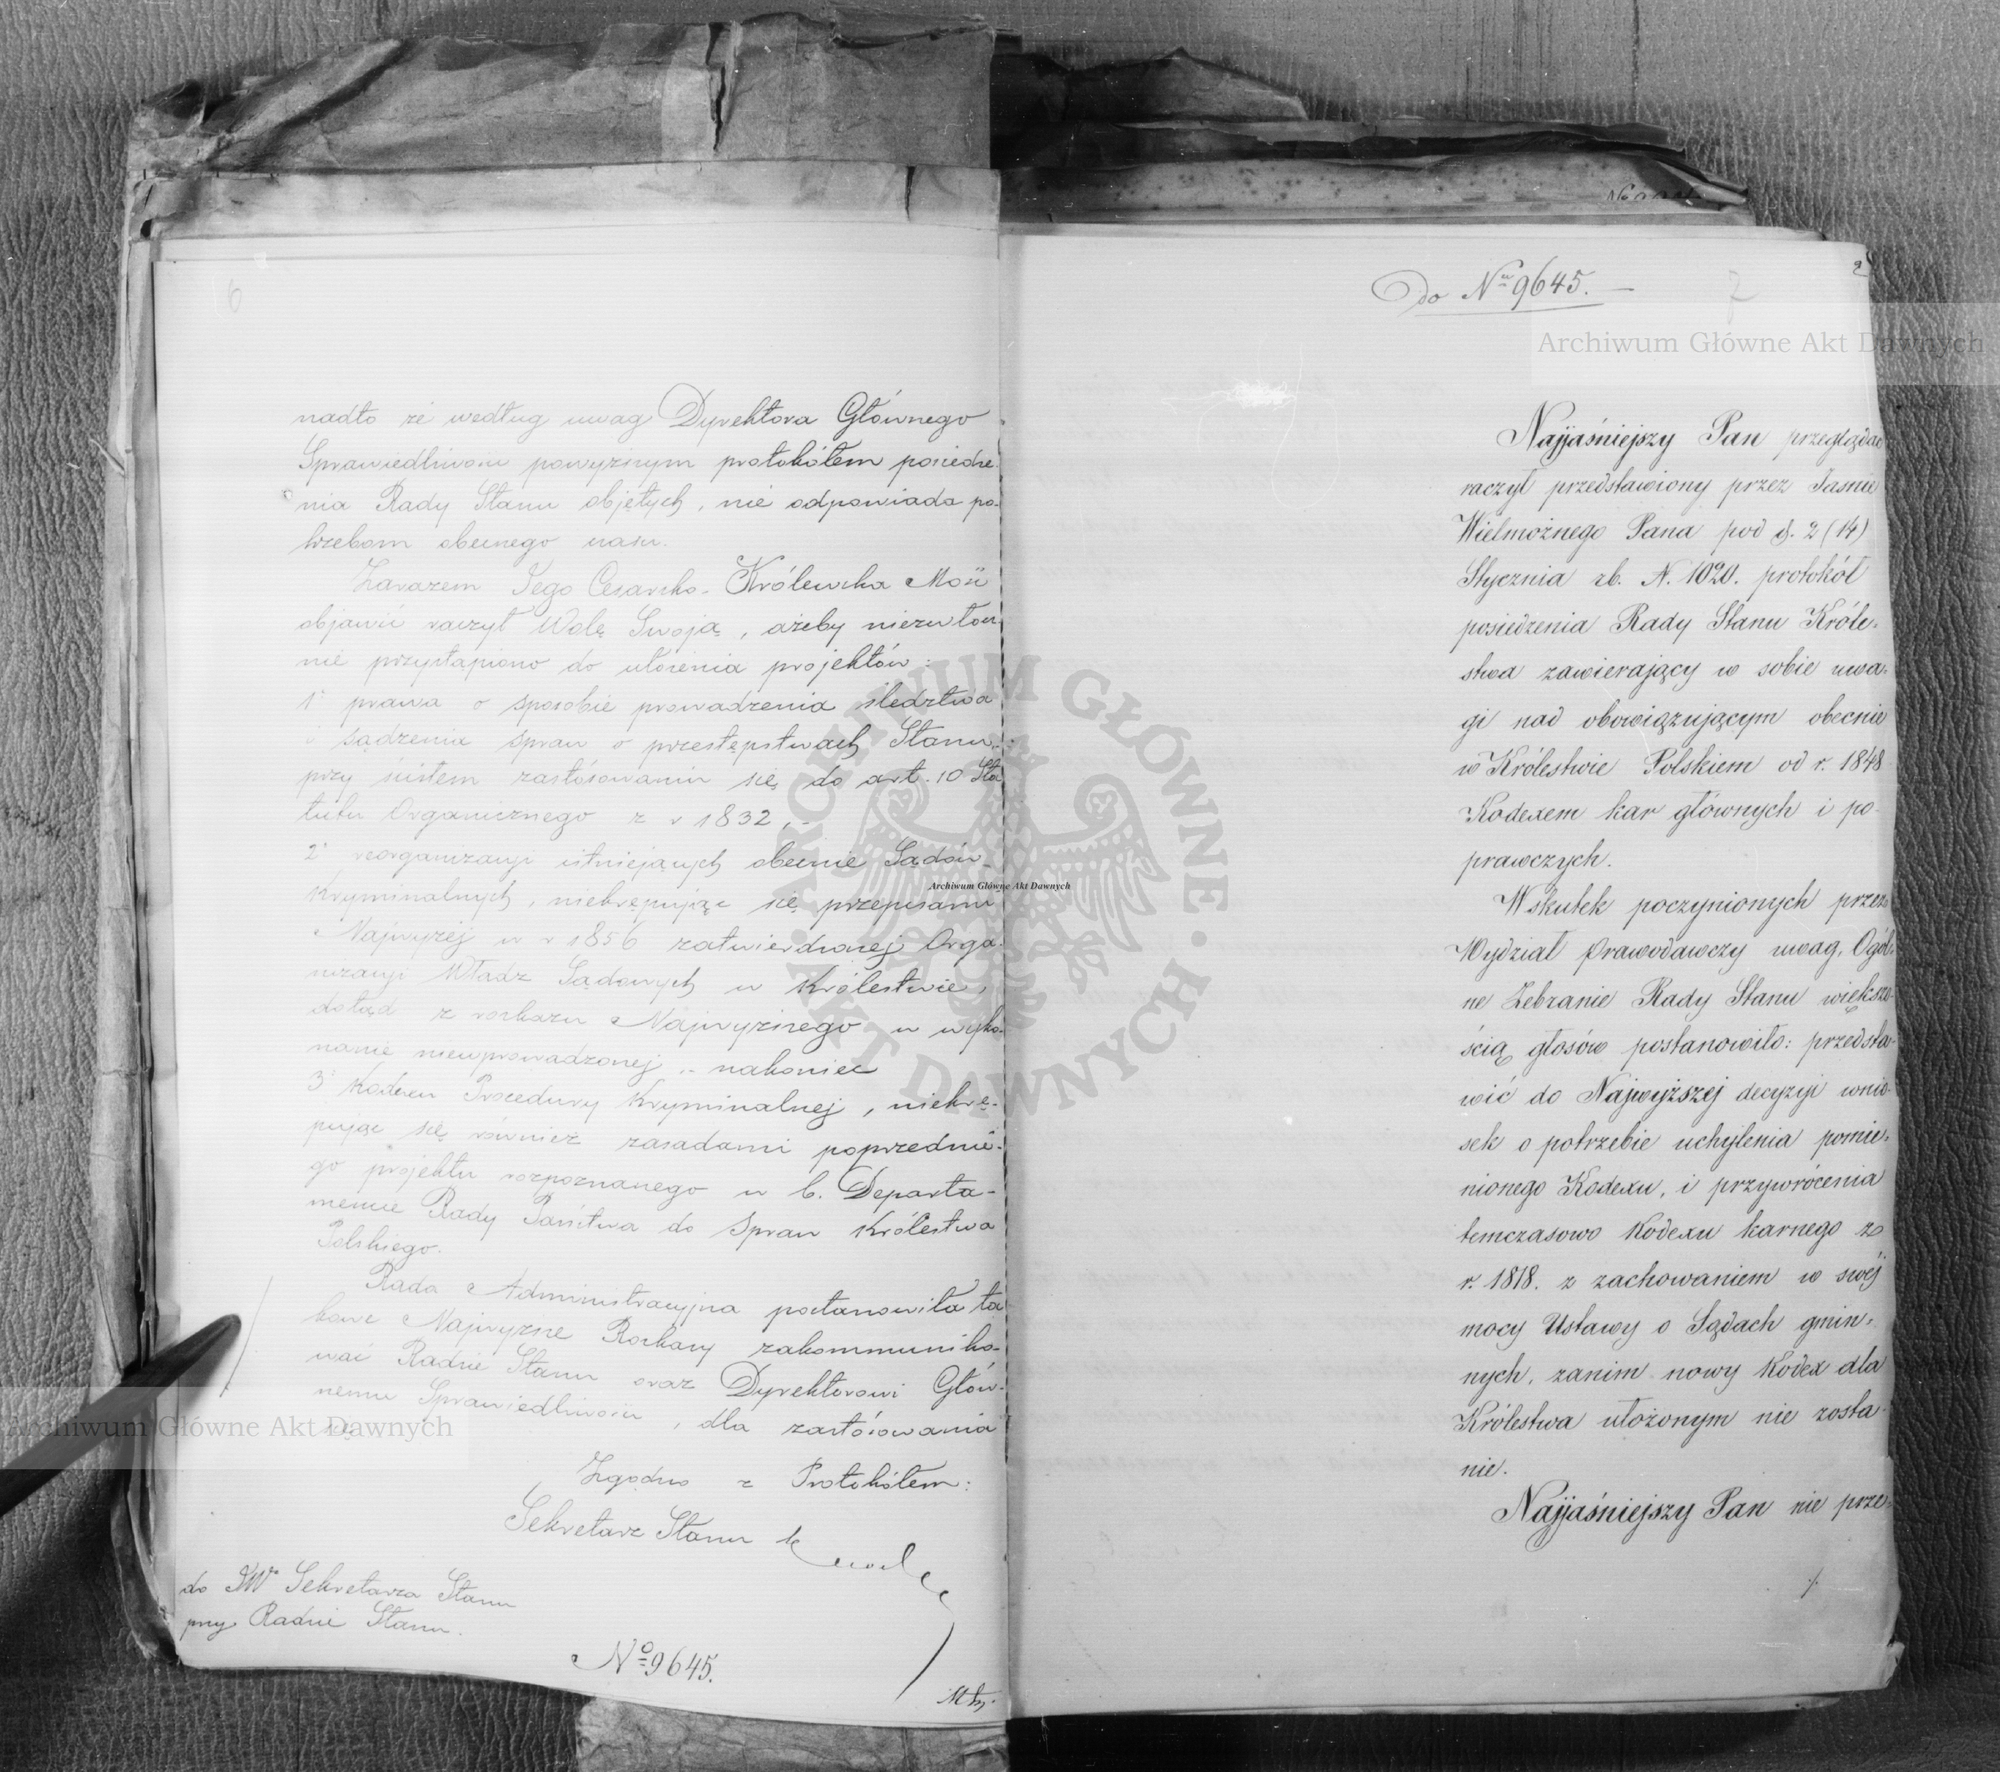 6
nadto że według uwag Dyrektora Głównego
Sprawiedliwości powyższym protokółem posiedze-
nia Rady Stanu objętych, nie odpowiada po-
trzebom obecnego czasu.
Zarazem Jego Cesarsko-Królewska Mość
objawić raczył Wolę Swoją, ażeby niezwłocz
nie przystąpiono do ułożenia projektów:
1° prawa o sposobie prowadzenia śledztwa
i sądzenia spraw o przestępstwach Stanu,
przy ścisłem zastósowaniu się do art. 10 Sta
tutu Organicznego z r 1832,-
2° reorganizacyi istniejących obecnie Sądów
Kryminalnych, niekrępując się przepisami
Najwyżej w r 1856 zatwierdzonej Orga-
nizacyi Władz Sądowych w Królestwie,
dotąd z rozkazu Najwyższego w wyko-
nanie niewprowadzonej,- nakoniec
3° Kodexu Procedury Kryminalnej, niekrę-
pując się również zasadami poprzednie-
go projektu rozpoznanego w b. Departa-
mencie Rady Państwa do Spraw Królestwa
Polskiego.
Rada Administracyjna postanowiła ta
kowe Najwyższe Rozkazy zakommuniko-
wać Radzie Stanu oraz Dyrektorowi Głów-
nemu Sprawiedliwości, dla zastósowania
się
Zgodno z Protokółem:
Sekretarz Stanu
do JWo Sekretarza Stanu
przy Radzie Stanu.
No 9645.
do Nru 9645. —
7
2
Najjaśniejszy Pan przeglądać
raczył przedstawiony przez Jaśnie
Wielmożnego Pana pod d. 2 (14)
Stycznia rb. N. 1020. protokół
posiedzenia Rady Stanu Króle-
stwa zawierający w sobie uwa-
gi nad obowiązującym obecnie
w Królestwie Polskiem od r. 1848
Kodexem kar głównych i po-
prawczych.
Wskutek poczynionych przez
Wydział Prawodawczy uwag, Ogól-
ne Zebranie Rady Stanu większo-
ścią głosów postanowiło: przedsta-
wić do Najwyższej decyzyi wnio-
sek o potrzebie uchylenia pomie-
nionego Kodexu, i przywrócenia
tymczasowo Kodexu karnego z
r. 1818. z zachowaniem w swej
mocy Ustawy o Sądach gmin-
nych, zanim nowy Kodex dla
Królestwa ułożonym nie zosta-
nie.
Najjaśniejszy Pan nie prze-
./.
Archiwum Główne Akt Dawnych
Archiwum Główne Akt Dawnych
Archiwum Główne Akt Dawnych
ARCHIWUM GŁÓWNE AKT DAWNYCH